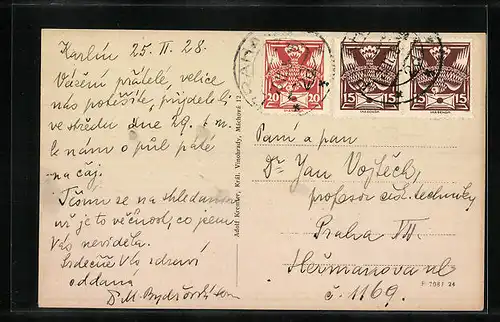 Karlín 25. II. 28.
Vážení přátelé, velice
nás potěšíte, přijdete-li
ve středu dne 29. t. m.
k nám o půl páté
na čaj.
Těším se na shledanou
už je to věčnost, co jsem
Vás neviděla.
Srdečně Vás zdraví
oddaná
M.
Adolf Kral. Vinohrady, Máchova 12
PRAHA
20 20
15 15
15 15
Paní a pan
Dr Jan Vojtěch,
profesor čes. techniky
Praha VII.
Heřmanova ul.
č. 1169.
24